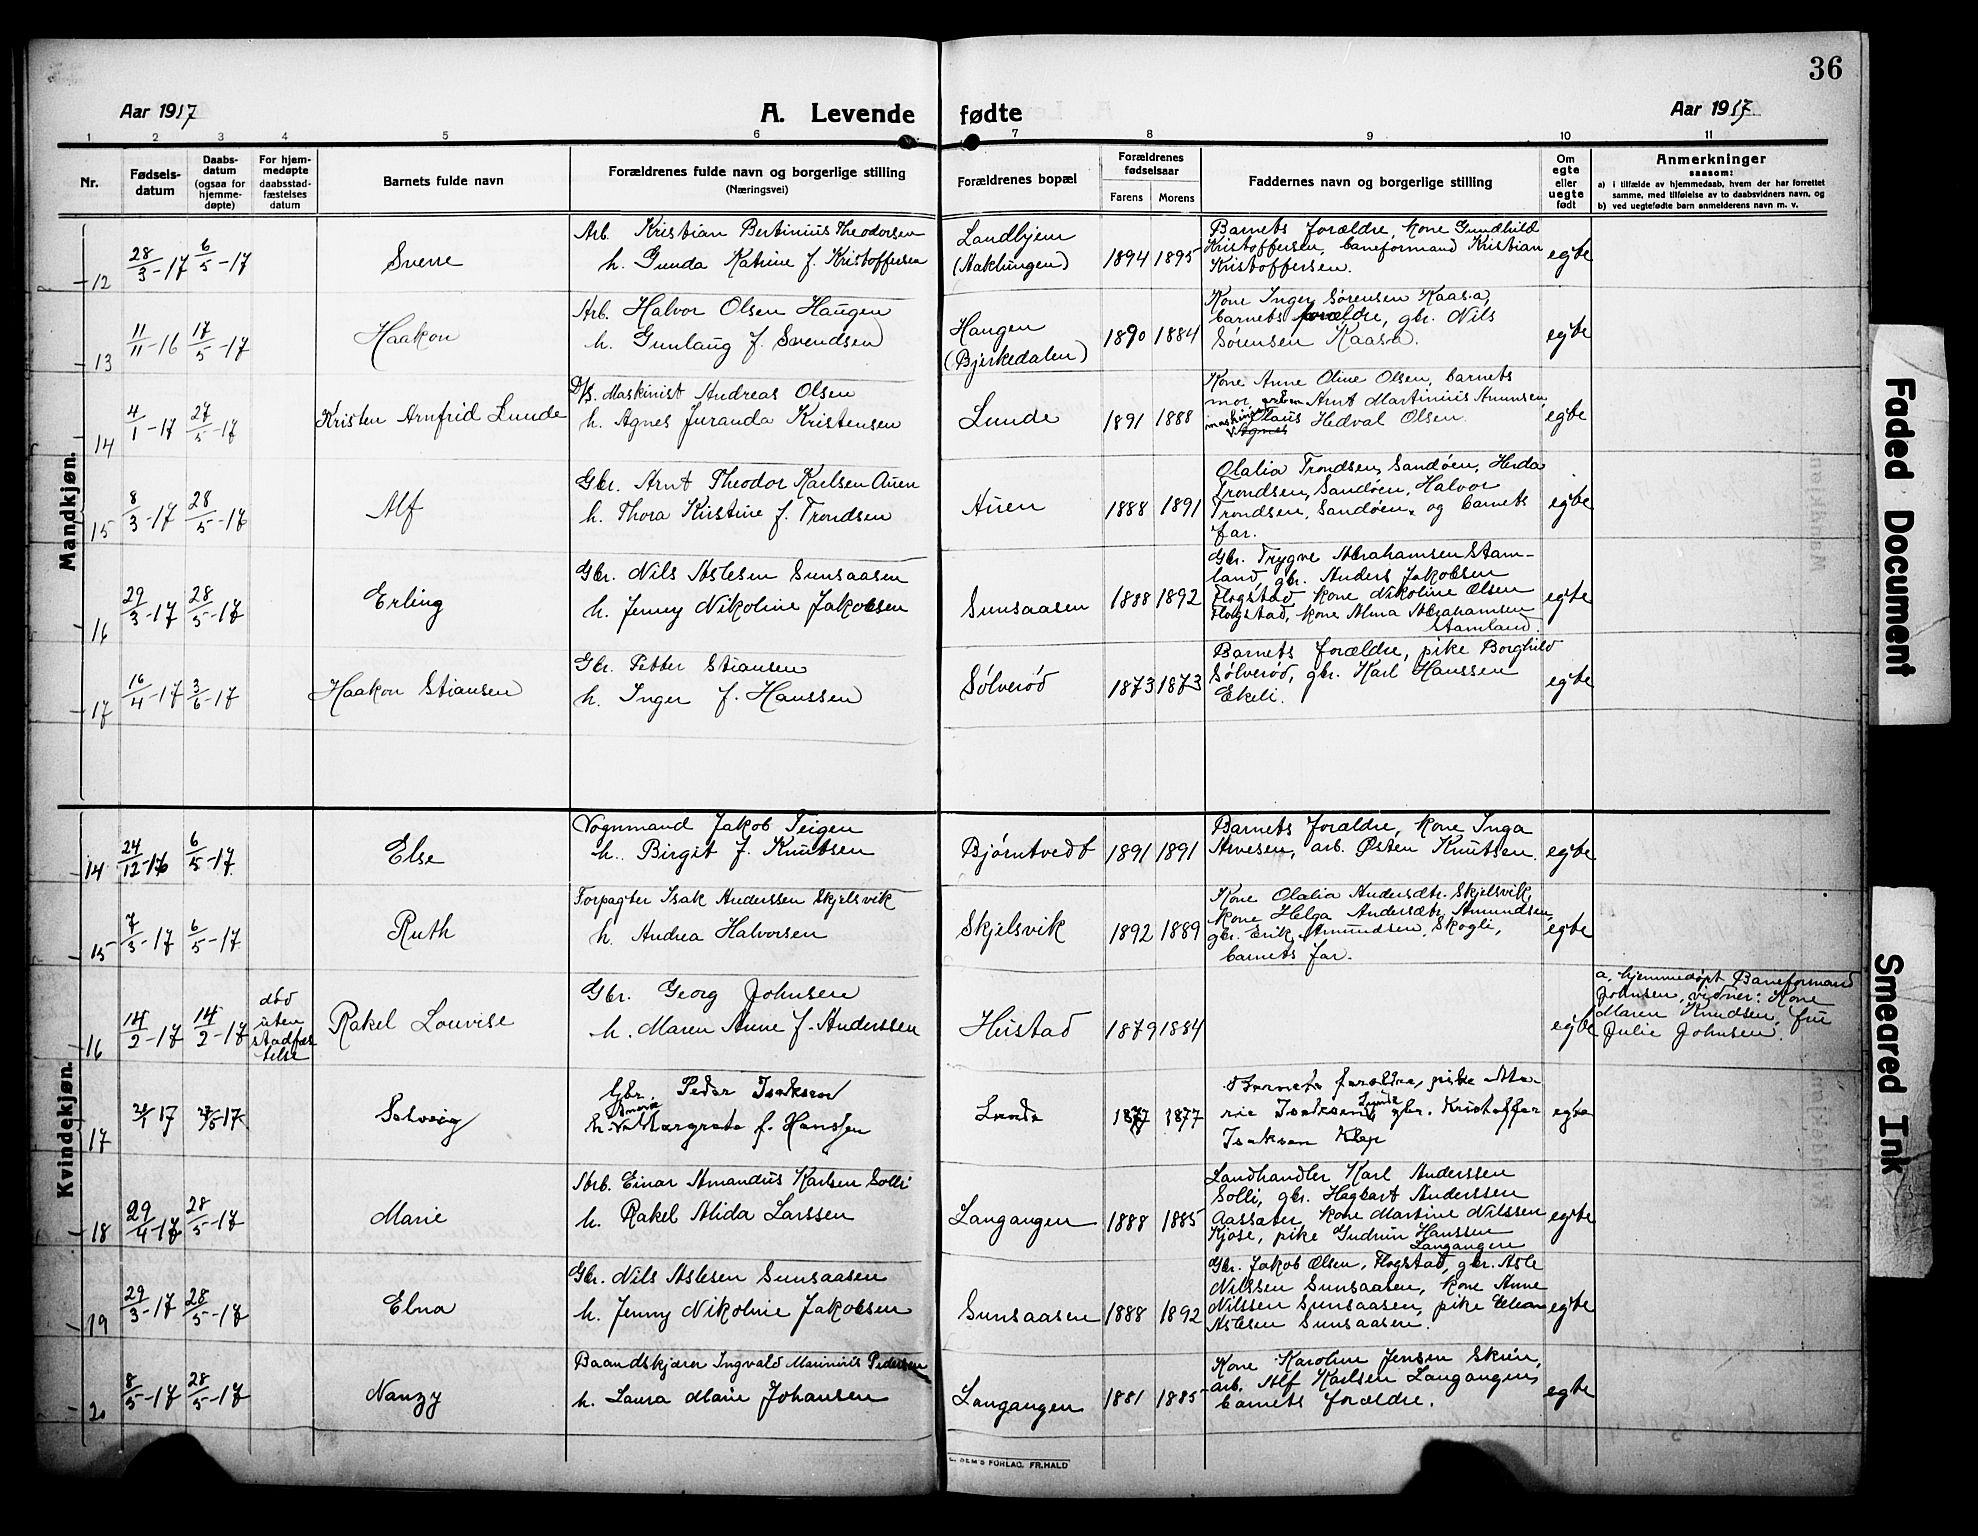 36
Aar 1917
A. Levende fødte
Aar 1917
1 2 3 4 5 6 7 8 9 10 11
Nr.
Fødsels-
datum
Daabs-
datum
(ogsaa for
hjemme-
døpte)
For hjem-
medøpte
daabsstad-
fæstelses
datum
Barnets fulde navn
Forældrenes fulde navn og borgerlige stilling
(Næringsvei)
Forældrenes bopæl
Forældrenes
fødselsaar
Farens Morens
Faddernes navn og borgerlige stilling
Om
egte
eller
uegte
født
Anmerkninger
saasom:
a) i tilfælde av hjemmedaab, hvem der har forrettet
samme, med tilføielse av to daabsvidners navn, og
b) ved uegtefødte barn anmelderens navn m. v.
Mandkjøn.
12 28/3-17 6/5-17 Sverre
Arb. Kristian Bertinius Theodorsen
h. Gunda Katrine f. Kristoffersen
Landbjem
(Haklungen)
1894 1895
Barnets forældre, kone Gundhild
Kristoffersen, baneformand Kristian
Kristoffersen.
egte
13 11/11-16 17/5-17 Haakon
Arb. Halvor Olsen Haugen
h. Gunlaug f. Svendsen
Haugen
(Bjerkedalen)
1890 1884
Kone Inger Sørensen Kaasa,
barnets forældre, gbr. Nils
Sørensen Kaasa.
egte
14 4/1-17 27/5-17 Kristen Arnfrid Lunde
D/S. Maskinist Andreas Olsen
h. Agnes Juranda Kristensen
Lunde
1891 1888
Kone Anne Oline Olsen, barnets
mor, Arnt Martinius Amundsen
maskinist Olaus Hedval Olsen.
egte
15 8/3-17 28/5-17 Alf
Gbr. Arnt Theodor Karlsen Auen
h. Thora Kirstine f. Trondsen
Auen
1888 1891
Olalia Trondsen, Sandøen, Herda
Trondsen, Sandøen, Halvor
Trondsen, Sandøen, og barnets
far.
egte
16 29/3-17 28/5-17 Erling
Gbr. Nils Aslesen Sunsaasen
h. Jenny Nikoline Jakobsen
Sunsaasen
1888 1892
Gbr. Trygve Abrahamsen Stam-
land, gbr. Anders Jakobsen
Flogstad, kone Nikoline Olsen
Flogstad, kone Alma Abrahamsen
Stamland.
egte
17 16/4-17 3/6-17 Haakon Stiansen
Gbr. Petter Stiansen
h. Inger f. Hanssen
Sølverød
1873 1873
Barnets forældre, pike Borghild
Sølverød, gbr. Karl Hanssen
Ekeli.
egte
Kvindekjøn.
14 24/12-16 6/5-17 Else
Vognmand Jakob Teigen
h. Birgit f. Knutsen
Bjørntvedt
1891 1891
Barnets forældre, kone Inga
Arvesen, arb. Østen Knutsen.
egte
15 7/3-17 6/5-17 Ruth
Forpagter Isak Anderssen Skjelsvik
h. Andrea Halvorsen
Skjelsvik
1892 1889
Kone Olalia Andersdtr. Skjelsvik,
kone Helga Andersdtr. Amundsen,
gbr. Erik Amundsen, Skogli,
barnets far.
egte
16 14/2-17 14/2-17
død
uten
stadfæs
telse
Rakel Louvise
Gbr. Georg Johnsen
h. Maren Anne f. Anderssen
Heistad
1879 1884
egte
a. hjemmedøpt Baneformand
Johnsen, vidner: Kone
Maren Knudsen, fru
Julie Johnsen.
17 Solveig
Gbr. Peder Isaksen
h. Margrete f. Hanssen
Lunde
1877 1877
Barnets forældre, pike Ma-
rie Isaksen Lunde, gbr. Kristoffer
Isaksen Klep
egte
18 29/4-17 28/5-17 Marie
Arb. Einar Amandus Karlsen Solli
h. Rakel Alida Larssen
Langangen
1888 1885
Landhandler Karl Anderssen
Solli, gbr. Hagbart Anderssen
Aassæter, kone Martine Nilssen
Kjøse, pike Gudrun Hanssen
Langangen
egte
19 29/3-17 28/5-17 Elna
Gbr. Nils Aslesen Sunsaasen
h. Jenny Nikoline Jakobsen
Sunsaasen
1888 1892
Gbr. Jakob Olsen, Flogstad, gbr. Asle
Nilssen Sunsaasen, kone Anne
Nilssen Sunsaasen, pike
Aslesen Sunsaasen.
egte
20 8/5-17 28/5-17 Nanzy
Baandskjærer Ingvald Marinius Pedersen
h. Laura Marie Johansen
Langangen
1881 1885
Kone Karoline Jensen Skrin,
arb. Alf Karlsen Langangen,
barnets forældre.
egte
FORLAG, FR.HALD
Faded Document
Smeared Ink